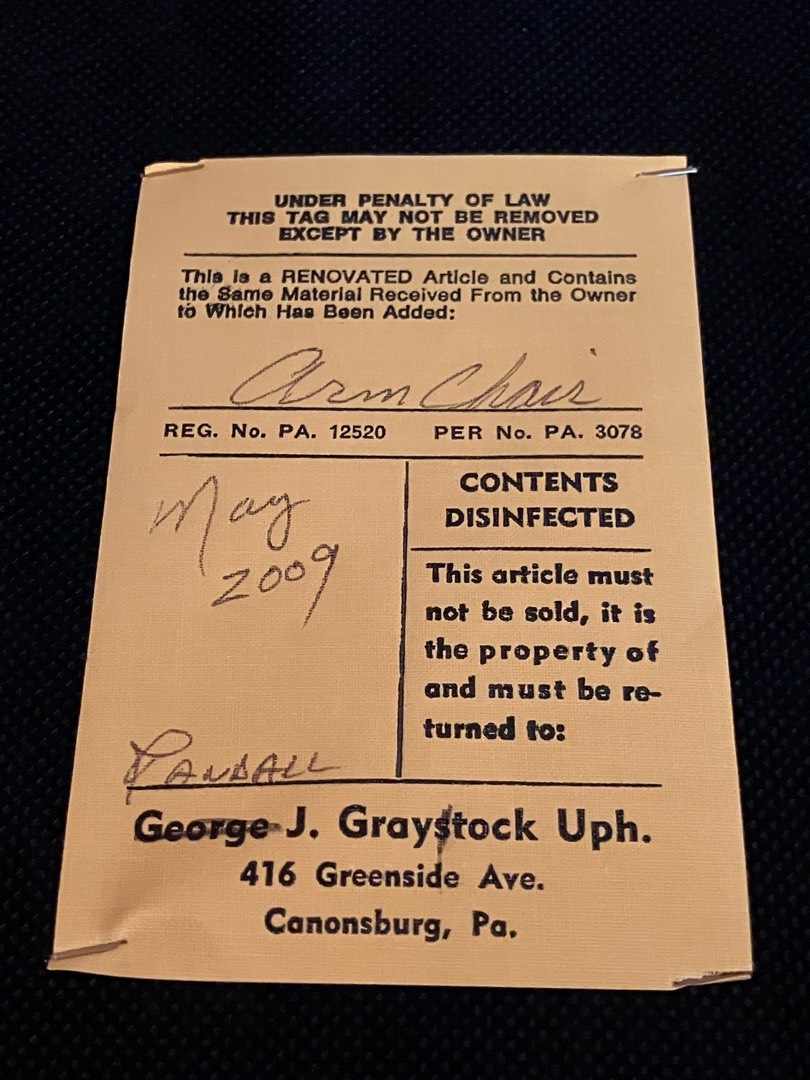 UNDER PENALTY OF LAW
THIS TAG MAY NOT BE REMOVED
EXCEPT BY THE OWNER
This is a RENOVATED Article and Contains
the Same Material Received From the Owner
to Which Has Been Added:
Arm Chair
REG. No. PA. 12520 PER No. PA. 3078
May
2009
CONTENTS
DISINFECTED
This article must
not be sold, it is
the property of
and must be re-
turned to:
RANDALL
George J. Graystock Uph.
416 Greenside Ave.
Canonsburg, Pa.